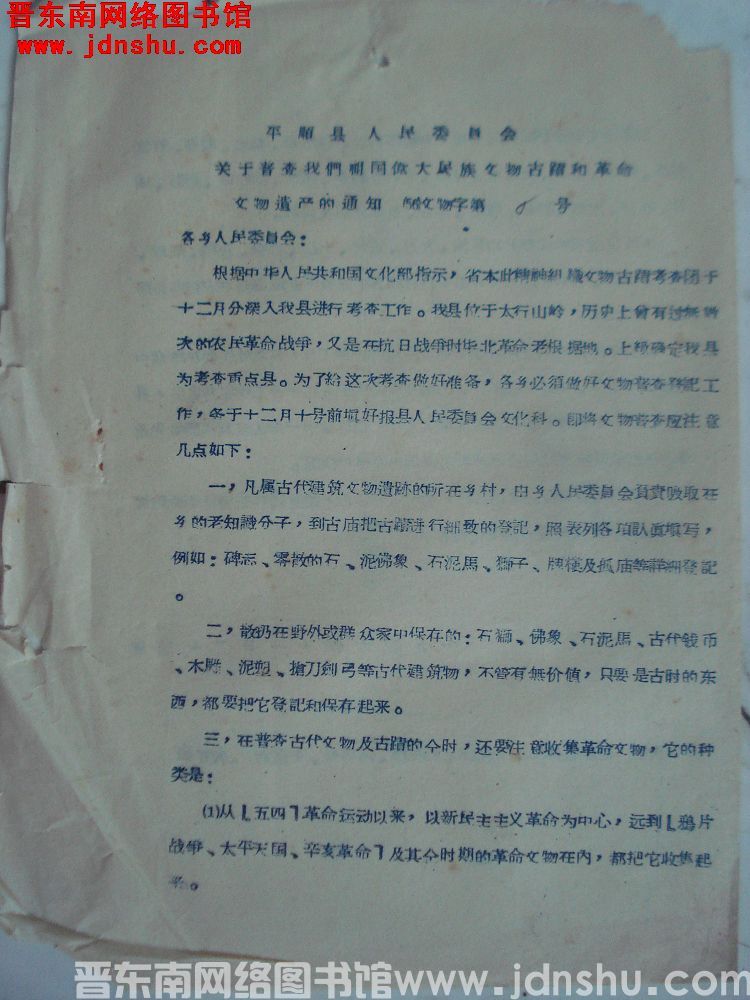 晋东南网络图书馆
www.jdnshu.com
平順县人民委員会
关于普查我們祖国偉大民族文物古蹟和革命
文物遺产的通知 文物字第 8 号
各乡人民委員会：
根据中华人民共和国文化部指示，省本此精神組織文物古蹟考查团于
十二月分深入我县进行考查工作。我县位于太行山岭，历史上曾有过無数
次的农民革命战爭，又是在抗日战爭时华北革命老根据地。上級确定我县
为考查重点县。为了給这次考查做好准备，各乡必須做好文物普查登記工
作，务于十二月十号前填好报县人民委員会文化科。即将文物普查应注意
几点如下：
一，凡属古代建筑文物遺跡的所在乡村，由乡人民委員会負責吸取在
乡的老知識分子，到古庙把古蹟进行細致的登記，照表列各項認眞填写，
例如：碑志、零散的石、泥佛象、石泥馬、獅子、牌楼及孤庙等詳細登記
。
二，散扔在野外或群众家中保存的：石獅、佛象、石泥馬、古代錢币
、木雕、泥塑、搶刀劍弓等古代建筑物，不管有無价值，只要是古时的东
西，都要把它登記和保存起来。
三，在普查古代文物及古蹟的仝时，还要注意收集革命文物，它的种
类是：
(1)从【五四】革命运动以来，以新民主主义革命为中心，远到【鴉片
战爭、太平天国、辛亥革命】及其仝时期的革命文物在內，都把它收集起
来。
晋东南网络图书馆www.jdnshu.com